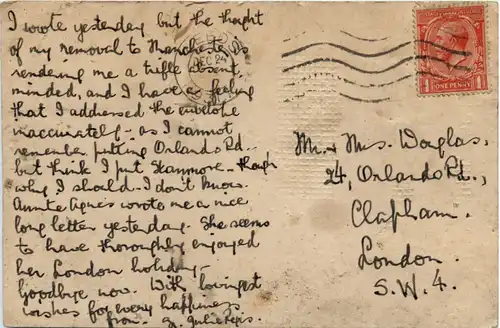 I wrote yesterday but the thought
of my removal to Manchester is
rendering me a trifle absent
minded, and I have a feeling
that I addressed the envelope
inaccurately - as I cannot
remember putting Orlando Rd.
but think I put Stanmore - though
why I should - I don't know.
Auntie Agnes wrote me a nice
long letter yesterday. She seems
to have thoroughly enjoyed
her London holiday -
Goodbye now. With lovingest
wishes for every happiness
from
Mr. & Mrs. Douglas.
24, Orlando Rd.,
Clapham.
London.
S.W.4.
DEC 24
ONE PENNY